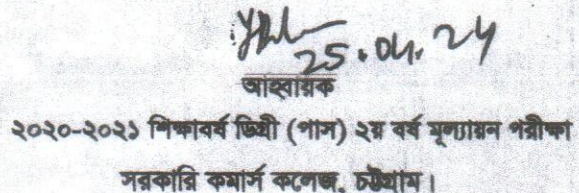 25.04.24
আহবায়ক
২০২০-২০২১ শিক্ষাবর্ষ ডিগ্রী (পাস) ২য় বর্ষ মূল্যায়ন পরীক্ষা
সরকারি কমার্স কলেজ, চট্টগ্রাম।